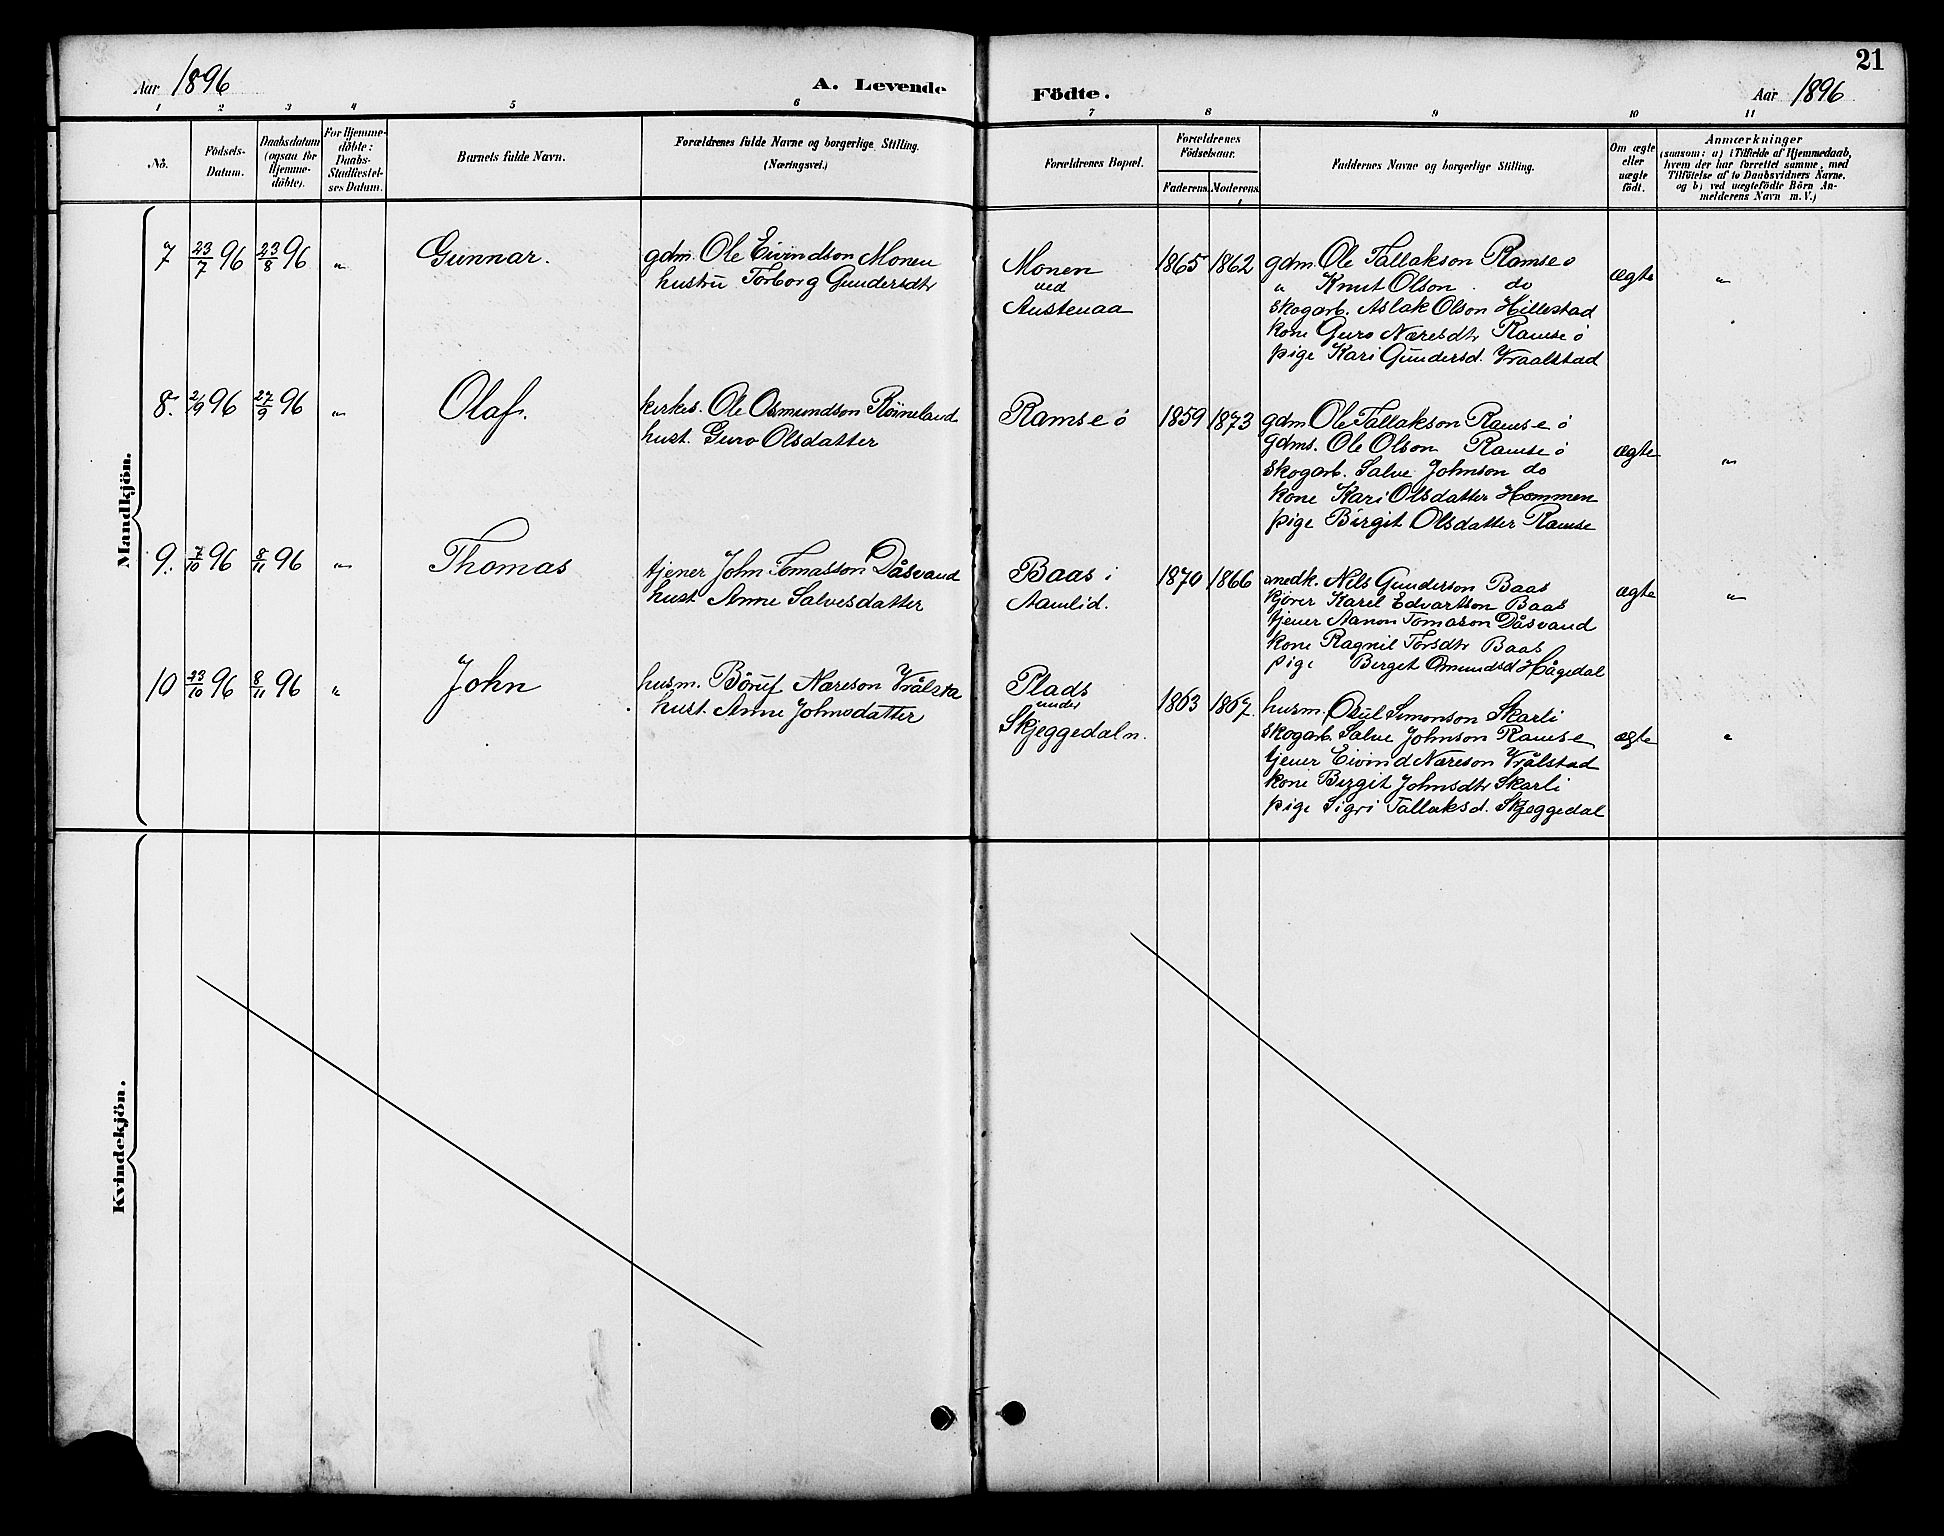 21
Aar 1896
A. Levende
Födte.
Aar 1896
1 2 3 4 5 6 7 8 9 10 11
No.
Födsels-
Datum.
Daabsdatum
(ogsaa for
Hjemme-
döbte).
For Hjemme-
döbte:
Daabs-
Stadfæstel-
ses Datum.
Barnets fulde Navn.
Forældrenes fulde Navne og borgerlige Stilling.
(Næringsvei.)
Forældrenes Bopæl.
Forældrenes
Födselsaar.
Faderens. Moderens.
Faddernes Navne og borgerlige Stilling.
Om ægte
eller
uægte
födt.
Anmærkninger
(saasom: a) i Tilfælde af Hjemmedaab,
hvem der har forrettet samme, med
Tilföielse af to Daabsvidners Navne,
og b) ved uægtefödte Börn An-
melderens Navn m. V.)
Mandkjön.
7 23/7 96 23/8 96 " Gunnar.
gdm. Ole Eivindson Monen
hustru Torborg Gundersdtr
Monen
ved
Austenaa
1865 1862
gdm. Ole Tallakson Ramse ø
" Knut Olson do
skogarb. Aslak Olson Hillestad
kone Guro Næresdtr Ramse ø
pige Kari Gundersd. Vraalstad
ægte "
8. 2/9 96 27/9 96 " Olaf.
kirkes. Ole Osmundson Røineland
hust. Guro Olsdatter
Ramse ø
1859 1873
gdm Ole Tallakson Ramse ø
gdms. Ole Olson Ramse ø
skogarb. Salve Johnson do
kone Kari Olsdatter Hommen
pige Birgit Olsdatter Ramse
ægte "
9. 7/10 96 8/11 96 " Thomas
tjener John Tomasson Dåsvand
hust. Anne Salvesdatter
Baas i
Aamlid.
1870 1866
Nils Gunderson Baas
kjører Karel Edvartson Baas
tjener Aanon Tomason Dåsvand
kone Ragnil Torsdtr Baas
pige Berget Osmundsd Hågedal
ægte "
10 23/10 96 8/11 96 " John
husm. Næreson
hust. Anne Johnsdatter
Plads
under
Skjeggedaln.
1863 1867.
husm. Osul Simonson Skarli
skogarb. Salve Johnson Ramse
tjener Eivind Næreson Vrålstad
kone Birgit Johnsdtr Skarli
pige Sigri Tallaksd. Skjeggedal
ægte "
Kvindekjön.